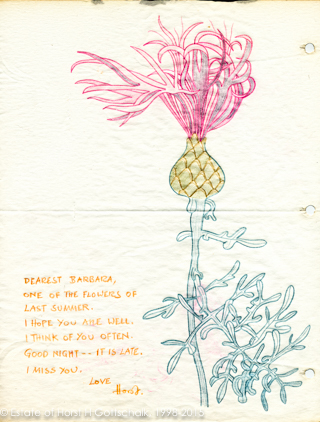 DEAREST BARBARA,
ONE OF THE FLOWERS OF
LAST SUMMER.
I HOPE YOU ARE WELL.
I THINK OF YOU OFTEN.
GOOD NIGHT -- IT IS LATE.
I MISS YOU.
LOVE
Horst.
© Estate of Horst H Gottschalk, 1996-2016